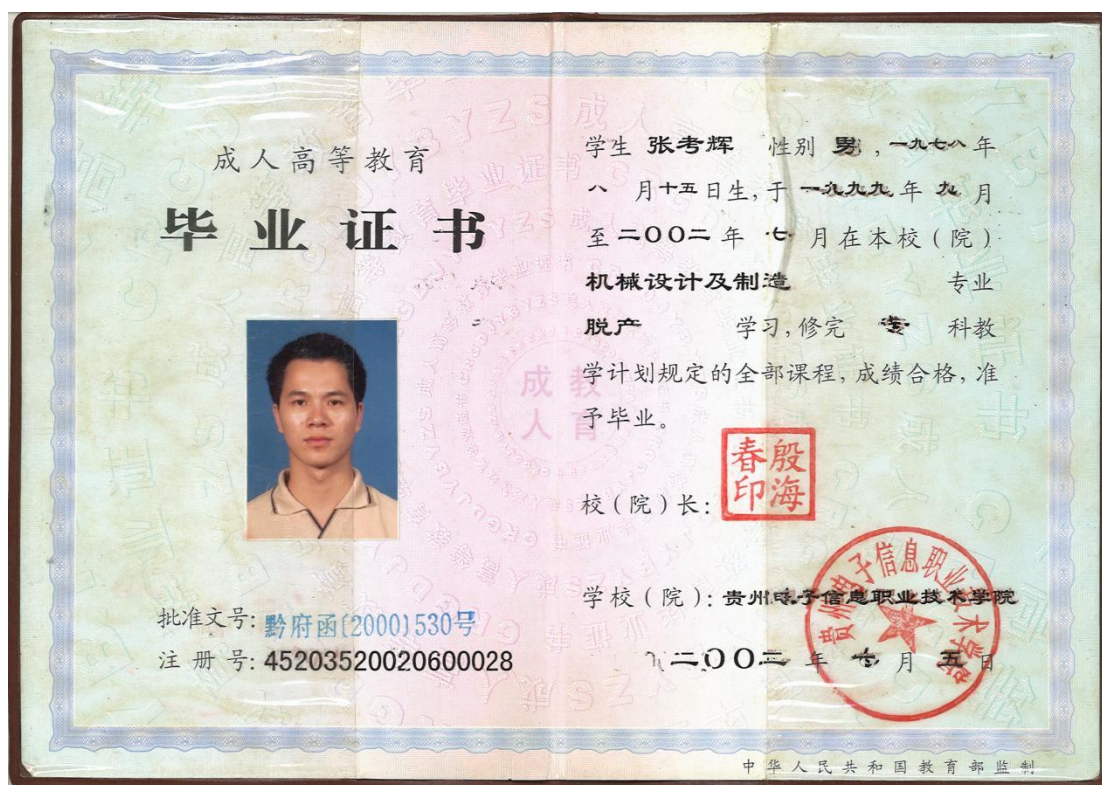 成人高等教育
毕业证书
成教
人育
批准文号: 黔府函[2000]530号
注 册 号: 45203520020600028
学生 张考辉 性别 男, 一九七八年
八 月十五日生, 于 一九九九 年 九 月
至二00二 年 七 月在本校(院)
机械设计及制造 专业
脱产 学习, 修完 专 科教
学计划规定的全部课程, 成绩合格, 准
予毕业。
校(院)长: 殷海春印
学校(院): 贵州电子信息职业技术学院
二00二 年 七 月 五 日
贵州电子信息职业技术学院
中华人民共和国教育部监制